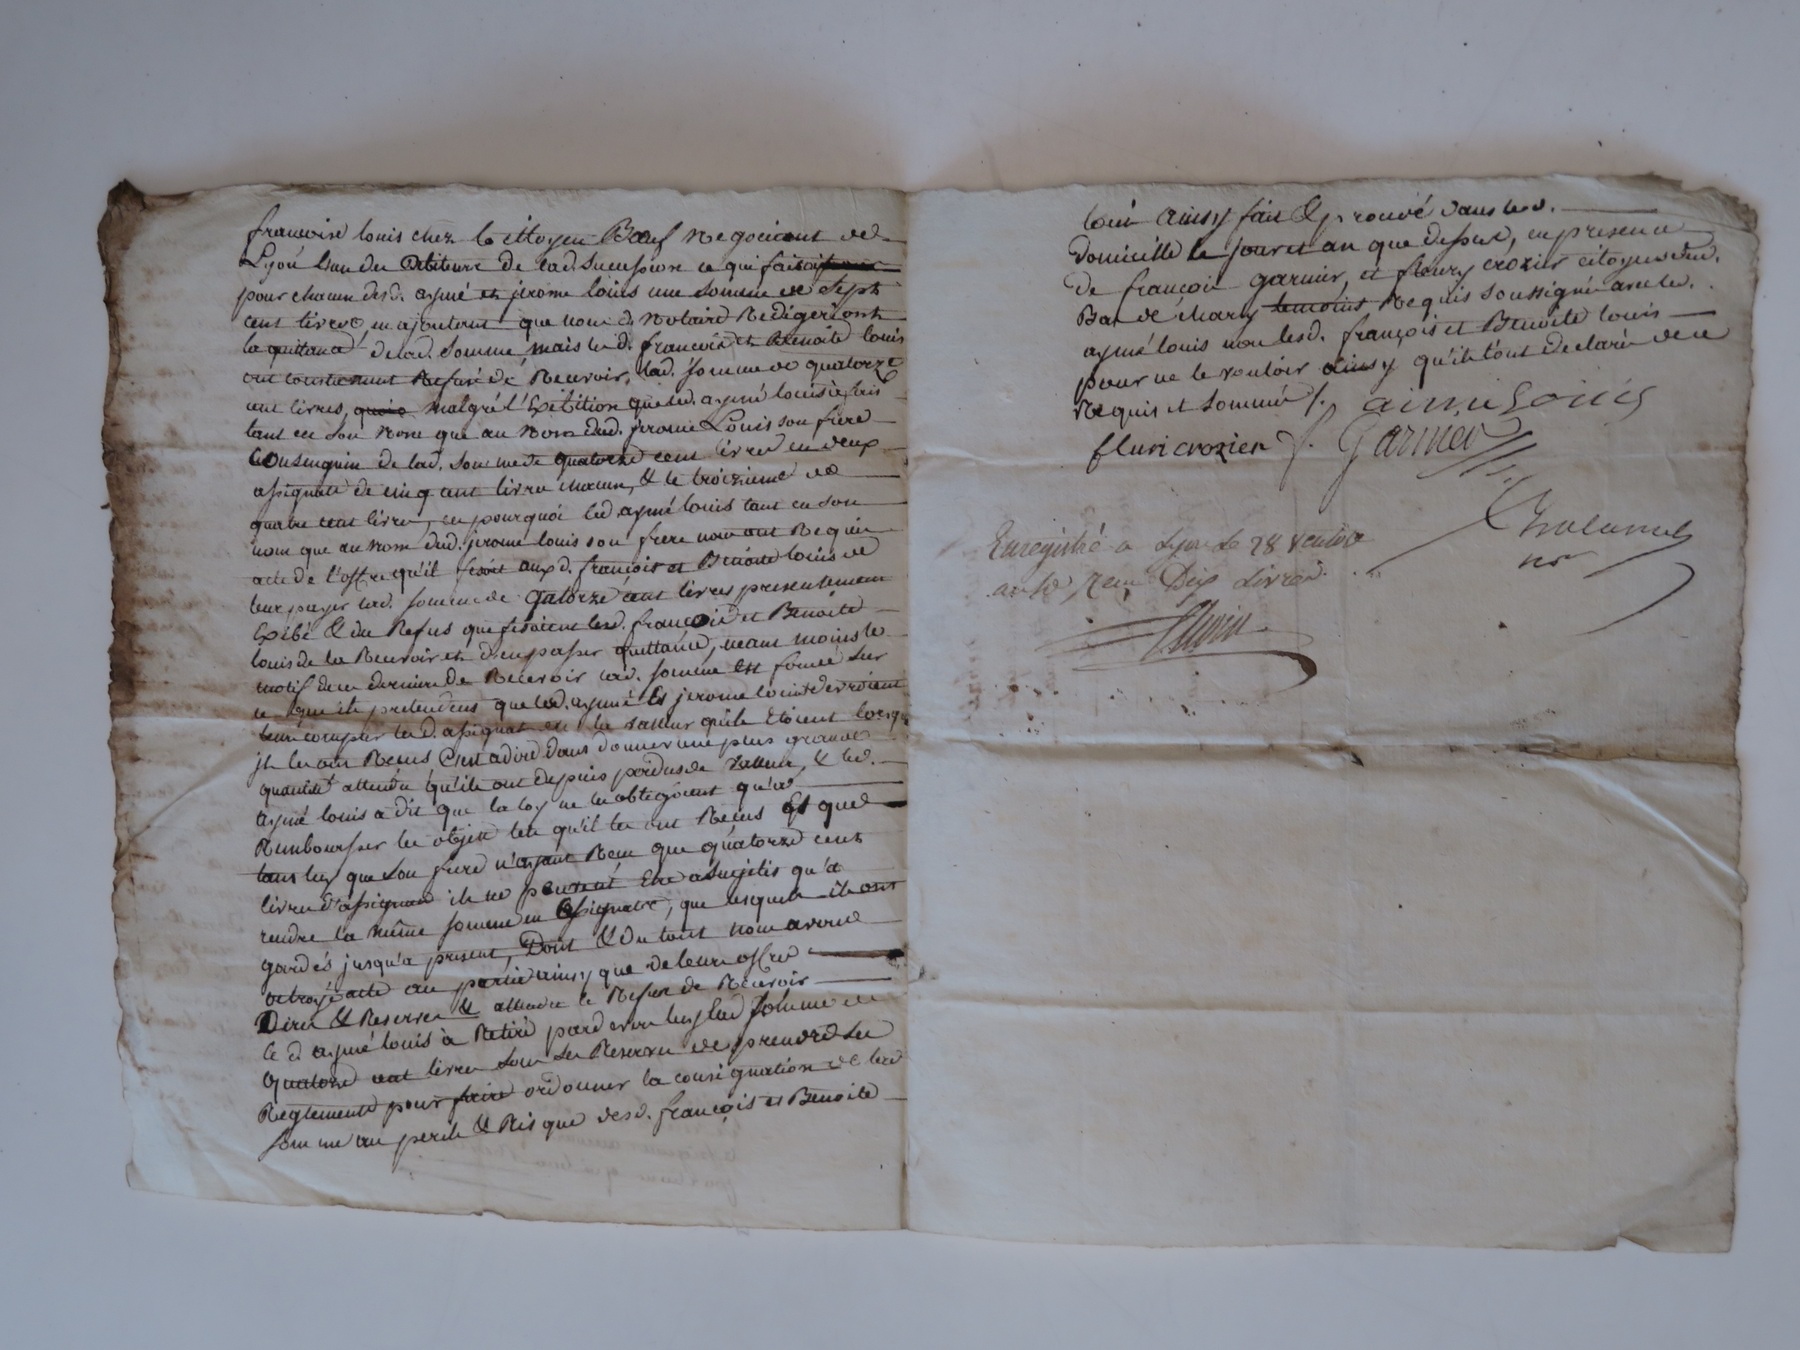 francoise louis chez le citoyen Boeuf Negociant de
Lyon l'un des debiteurs de lad. succession ce qui faisoit
pour chacun desd. aymé et jerome louis une somme de sept
cent livres, en ajoutant que nous d. Notaire Redigeriont
la quittance de lad. somme, mais led. francois et Benoite louis
ont Refusé de Recevoir, lad. somme de quatorze
cent livres, malgré l'Exibition que led. aymé louis a fait
tant en son Nom que au Nom dud. jerome Louis son frere
de lad. somme de quatorze cent livres en deux
assignats de cinq cent livres chacun, & le troizieme de
quatre cent livres, en pourquoi led. aymé louis tant en son
nom que au nom dud. jerome louis son frere nous ont Requis
acte de l'offre qu'il fesoit auxd. francois et Benoite louis de
leur payer lad. somme de quatorze cent livres presentement
Exibé & du Refus que fesoient lesd. francois et Benoite
louis de la Recevoir et d'en passer quittance, neant moins le
motif de ce dernier de Recevoir lad. somme est fondé sur
ce que ils pretendent que led. aymé Et jerome louis devroient
leur compter led. assignat en la valleur qu'ils Etoient lorsqu
jls les ont Recus c'est a dire dans donner une plus grande
quantité attendu qu'ils ont depuis perdus de valleur, & led.
aymé louis a dit que la loy ne les obligeoient qu'a
Rembourser les objets tels qu'il les ont Recus Et que
tant luy que son frere n'ayant Recu que quatorze cent
livres d'assignats ils ne peuvent Etre assujetis qu'a
rendre la même somme en assignats, que lesquels ils ont
gardés jusqu'a present, Dont & du tout nous avons
octroyé acte au parties ainsy que de leurs offres
Dires & Reserves & attendu le Refus de Recevoir
le d aymé louis à Retiré pardevers luy lad somme de
Quatorze cent livres sous ses Reserves de prendre ses
Reglements pour faire ordonner la consignation de lad
somme au perils & Risque desd. françois et Benoite
tout ainsy fait & prouvé dans led.
domicille le jour et an que dessus, en presence
de francois garnier, et fleury crozier citoyens dud.
Bas de charly temoins Requis soussignés avec led.
aymé louis non lesd. françois et Benoite louis
pour ne le vouloir ainsy qu'ils l'ont declaré de ce
Requis et sommés /.
aimé Louis
fluri crozier f. Garnier
Enregistré a Lyon le 28 ventose
an 3e, Reçu Dix Livres.
nre